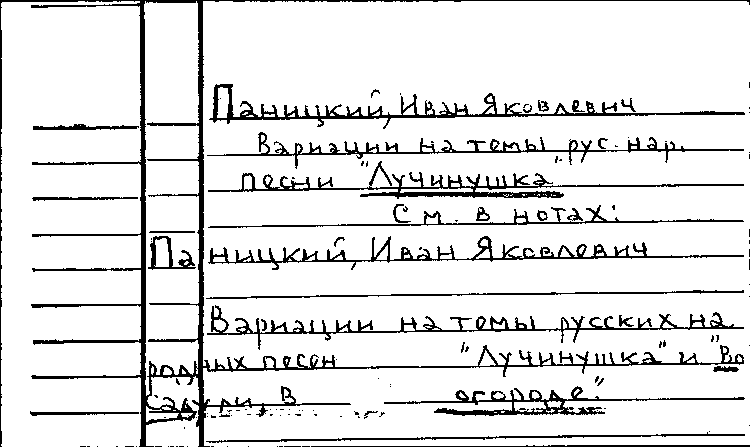 Паницкий, Иван Яковлевич
Вариации на темы рус. нар.
песни "Лучинушка"
См. в нотах:
Паницкий, Иван Яковлевич
Вариации на темы русских на
родных песен "Лучинушка" и "Во
саду ли, в огороде".